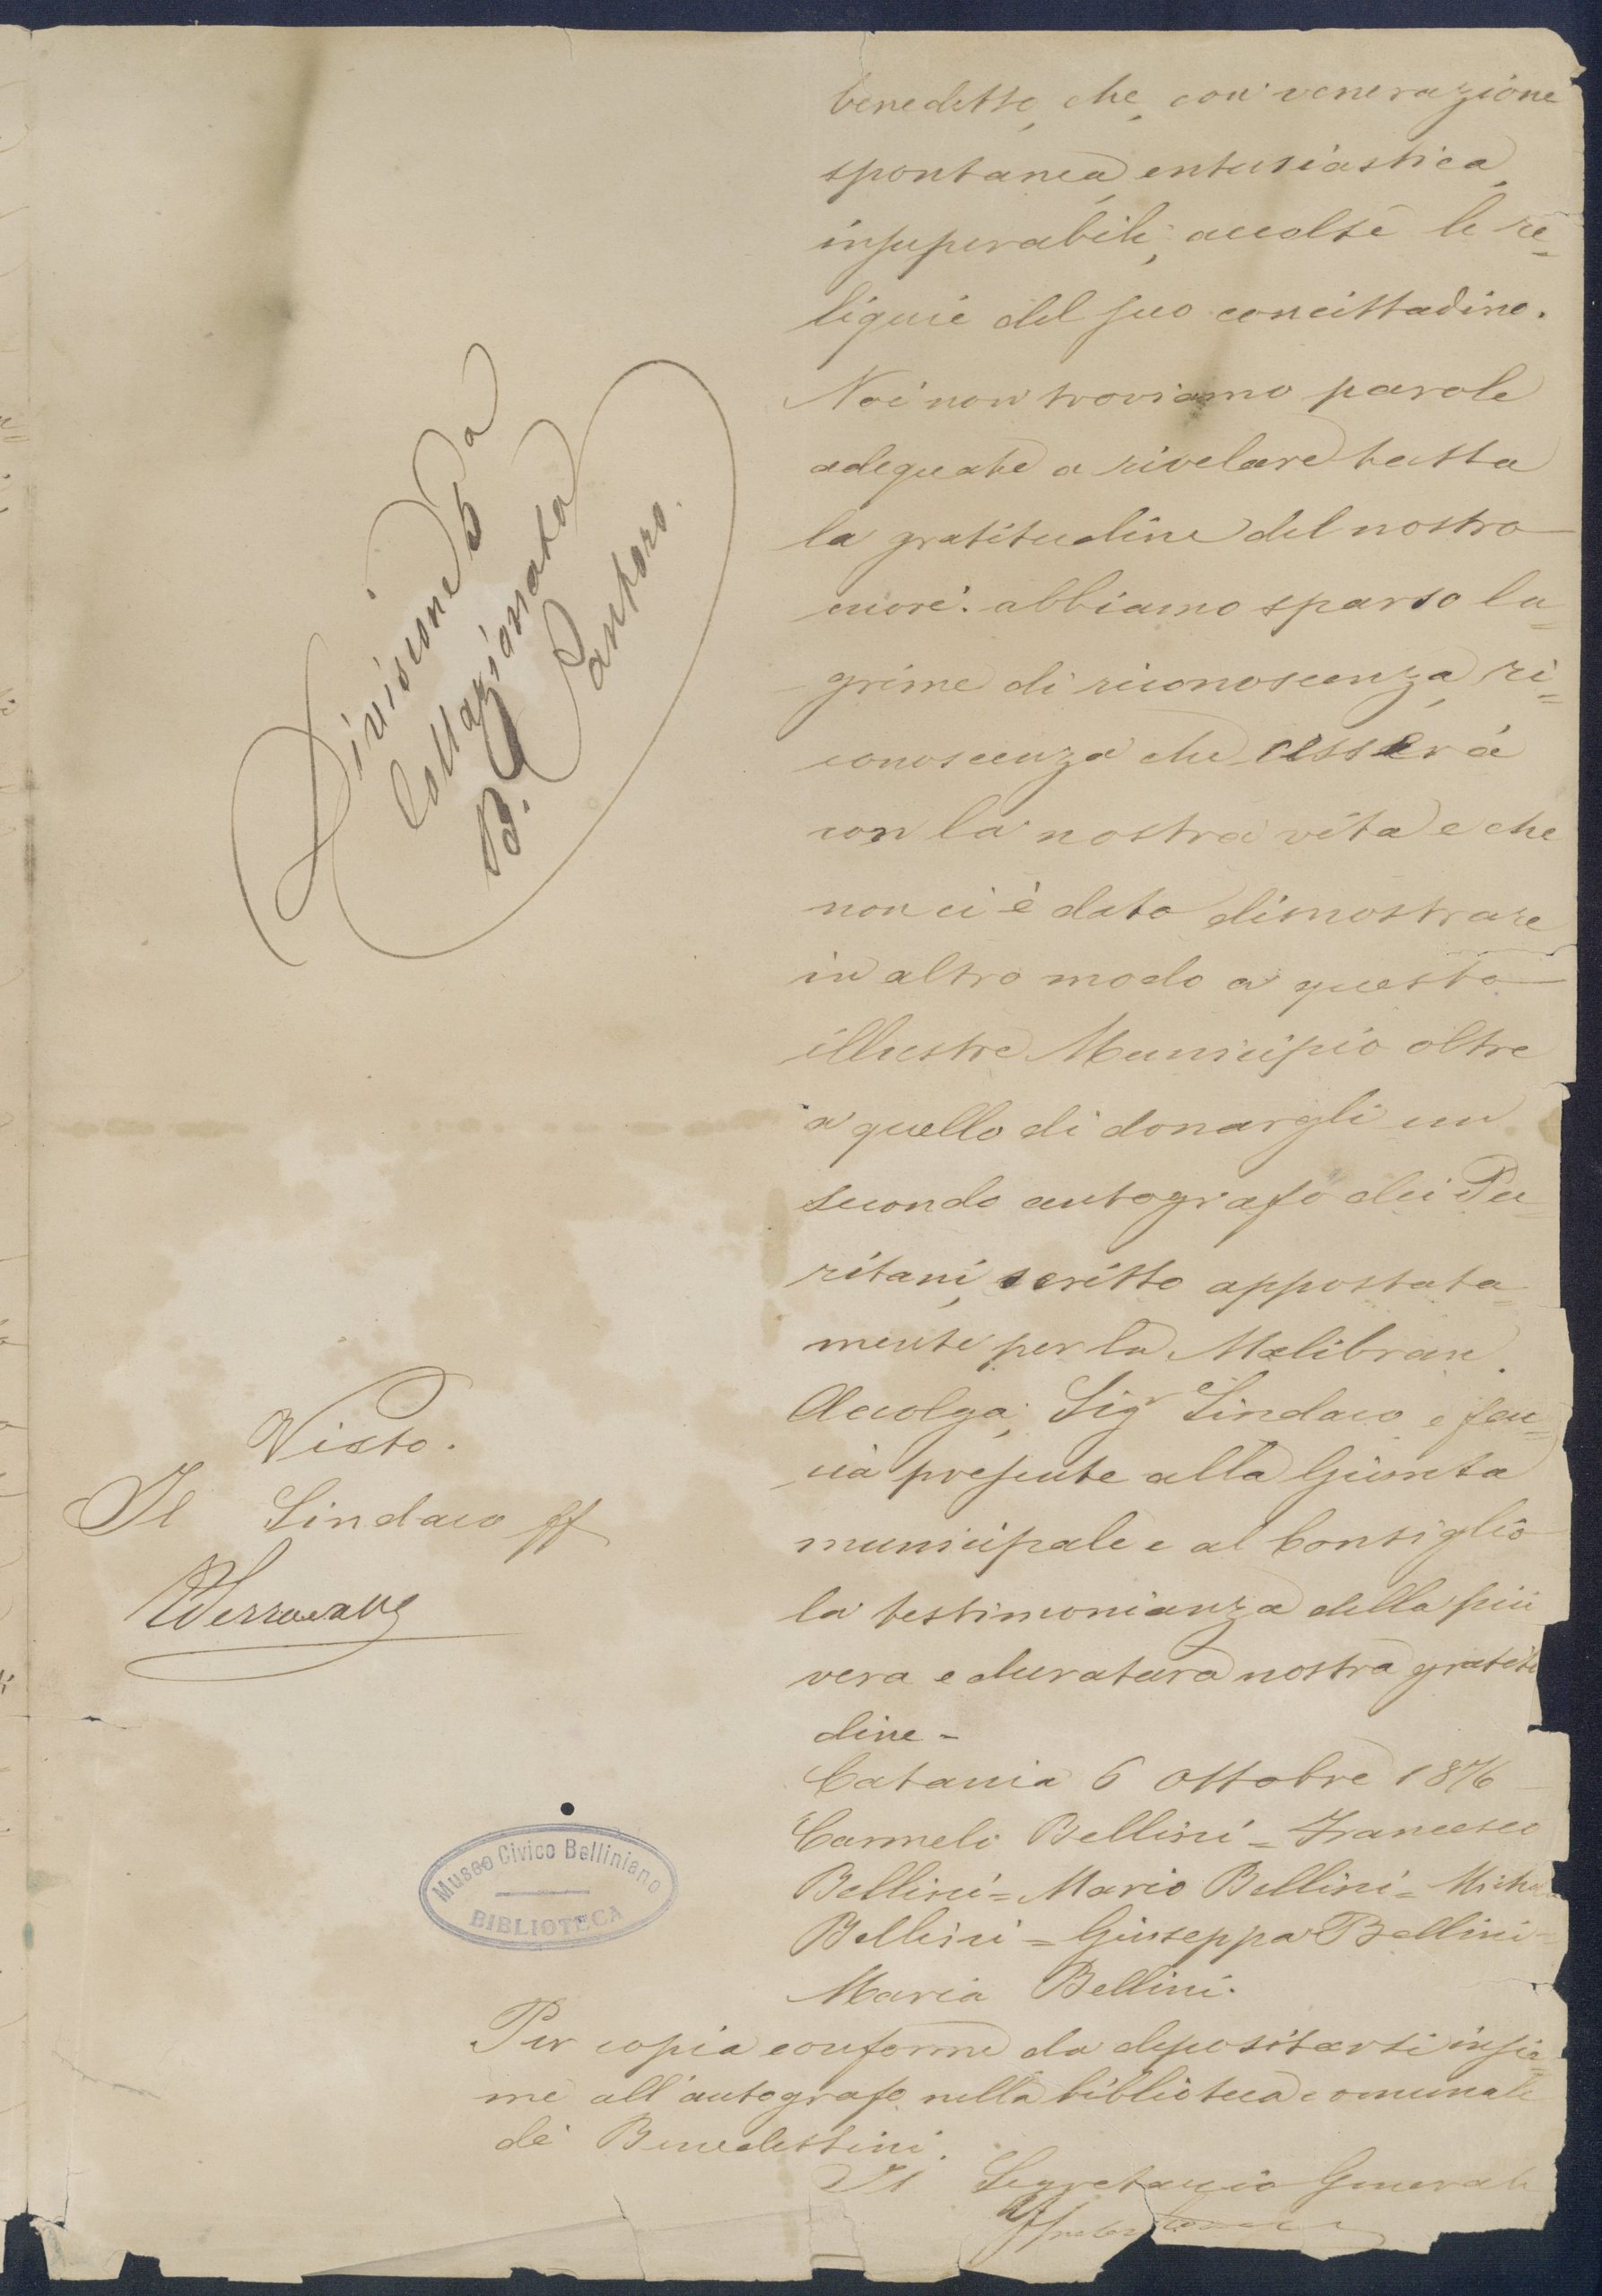 benedetto, che, con venerazione
spontanea, entusiastica,
insuperabile, accolse le re=
liquie del suo concittadino.
Noi non troviamo parole
adeguate a rivelare tutta
la gratitudine del nostro
cuore: abbiamo sparso la=
grime di riconoscenza, ri=
conoscenza che cesserà
con la nostra vita e che
non ci è dato dimostrare
in altro modo a questo
illustre Municipio oltre
a quello di donargli un
secondo autografo dei Pu=
ritani, scritto appostata=
mente per la Malibran.
Accolga, Sigr Sindaco e fac=
cia presente alla Giunta
municipale e al Consiglio
la testimonianza della più
vera e duratura nostra gratitu
dine -
Catania 6 Ottobre 1876
Carmelo Bellini = Francesco
Bellini = Mario Bellini =
Bellini = Giuseppa Bellini =
Maria Bellini.
Per copia conforme da depositarsi insie=
me all'autografo nella biblioteca comunale
dei Benedettini.
Il Segretario Generale
Divisione 5a
Collazionata
B. Santoro.
Visto.
Il Sindaco ff
Museo Civico Belliniano
BIBLIOTECA